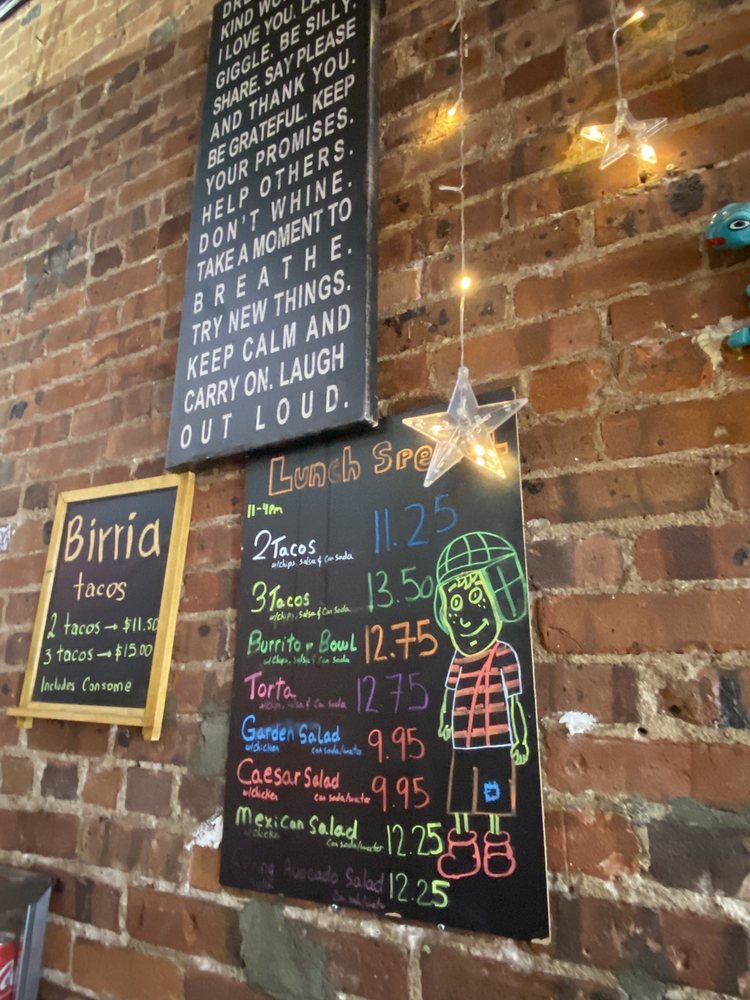 KIND WO
I LOVE YOU. LA
GIGGLE. BE SILLY.
SHARE. SAY PLEASE
AND THANK YOU.
BE GRATEFUL. KEEP
YOUR PROMISES.
HELP OTHERS.
DON'T WHINE.
TAKE A MOMENT TO
BREATHE.
TRY NEW THINGS.
KEEP CALM AND
CARRY ON. LAUGH
OUT LOUD.
Birria
tacos
2 tacos → $11.50
3 tacos → $15.00
Includes Consome
Lunch Spe
11-4pm
2 Tacos 11.25
w/chips, salsa & Can soda
3 Tacos 13.50
w/chips, salsa & Can soda
Burrito or Bowl 12.75
w/chips, salsa & Can soda
Torta 12.75
w/chips, salsa & Can soda
Garden Salad 9.95
w/chicken can soda/water
Caesar Salad 9.95
w/chicken can soda/water
Mexican Salad 12.25
w/chicken can soda/water
Avocado Salad 12.25